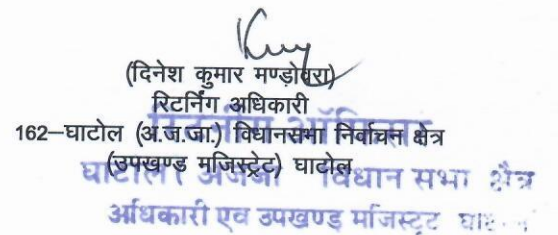 (दिनेश कुमार मण्डोवरा)
रिटर्निंग अधिकारी
162–घाटोल (अ.ज.जा.) विधानसभा निर्वाचन क्षेत्र
(उपखण्ड मजिस्ट्रेट) घाटोल
विधान सभा क्षेत्र
अधिकारी एवं उपखण्ड मजिस्ट्रट